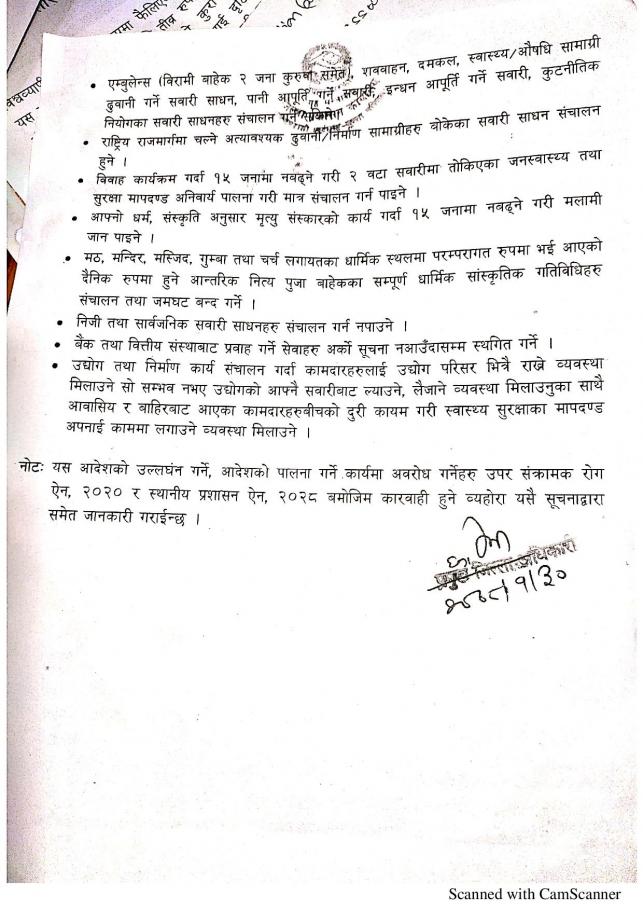 • एम्बुलेन्स (विरामी बाहेक २ जना कुरुवा समेत), शववाहन, दमकल, स्वास्थ्य/औषधि सामाग्री
ढुवानी गर्ने सवारी साधन, पानी आपूर्ति गर्ने सवारी, इन्धन आपूर्ति गर्ने सवारी, कुटनीतिक
नियोगका सवारी साधनहरु संचालन गर्न
• राष्ट्रिय राजमार्गमा चल्ने अत्यावश्यक ढुवानी/निर्माण सामाग्रीहरु बोकेका सवारी साधन संचालन
हुने ।
• बिवाह कार्यक्रम गर्दा १५ जनामा नबढ्ने गरी २ वटा सवारीमा तोकिएका जनस्वास्थ्य तथा
सुरक्षा मापदण्ड अनिवार्य पालना गरी मात्र संचालन गर्न पाइने ।
• आफ्नो धर्म, संस्कृति अनुसार मृत्यु संस्कारको कार्य गर्दा १५ जनामा नबढ्ने गरी मलामी
जान पाइने ।
• मठ, मन्दिर, मस्जिद, गुम्बा तथा चर्च लगायतका धार्मिक स्थलमा परम्परागत रुपमा भई आएको
दैनिक रुपमा हुने आन्तरिक नित्य पुजा बाहेकका सम्पूर्ण धार्मिक सांस्कृतिक गतिविधिहरु
संचालन तथा जमघट बन्द गर्ने ।
• निजी तथा सार्वजनिक सवारी साधनहरु संचालन गर्न नपाउने ।
• बैंक तथा वित्तीय संस्थाबाट प्रवाह गर्ने सेवाहरु अर्को सूचना नआउँदासम्म स्थगित गर्ने ।
• उद्योग तथा निर्माण कार्य संचालन गर्दा कामदारहरुलाई उद्योग परिसर भित्रै राख्ने व्यवस्था
मिलाउने सो सम्भव नभए उद्योगको आफ्नै सवारीबाट ल्याउने, लैजाने व्यवस्था मिलाउनुका साथै
आवासिय र बाहिरबाट आएका कामदारहरुबीचको दुरी कायम गरी स्वास्थ्य सुरक्षाका मापदण्ड
अपनाई काममा लगाउने व्यवस्था मिलाउने ।
नोट: यस आदेशको उल्लघंन गर्ने, आदेशको पालना गर्ने कार्यमा अवरोध गर्नेहरु उपर संक्रामक रोग
ऐन, २०२० र स्थानीय प्रशासन ऐन, २०२८ बमोजिम कारवाही हुने व्यहोरा यसै सूचनाद्वारा
समेत जानकारी गराईन्छ ।
प्रमुख जिल्ला अधिकारी
Scanned with CamScanner